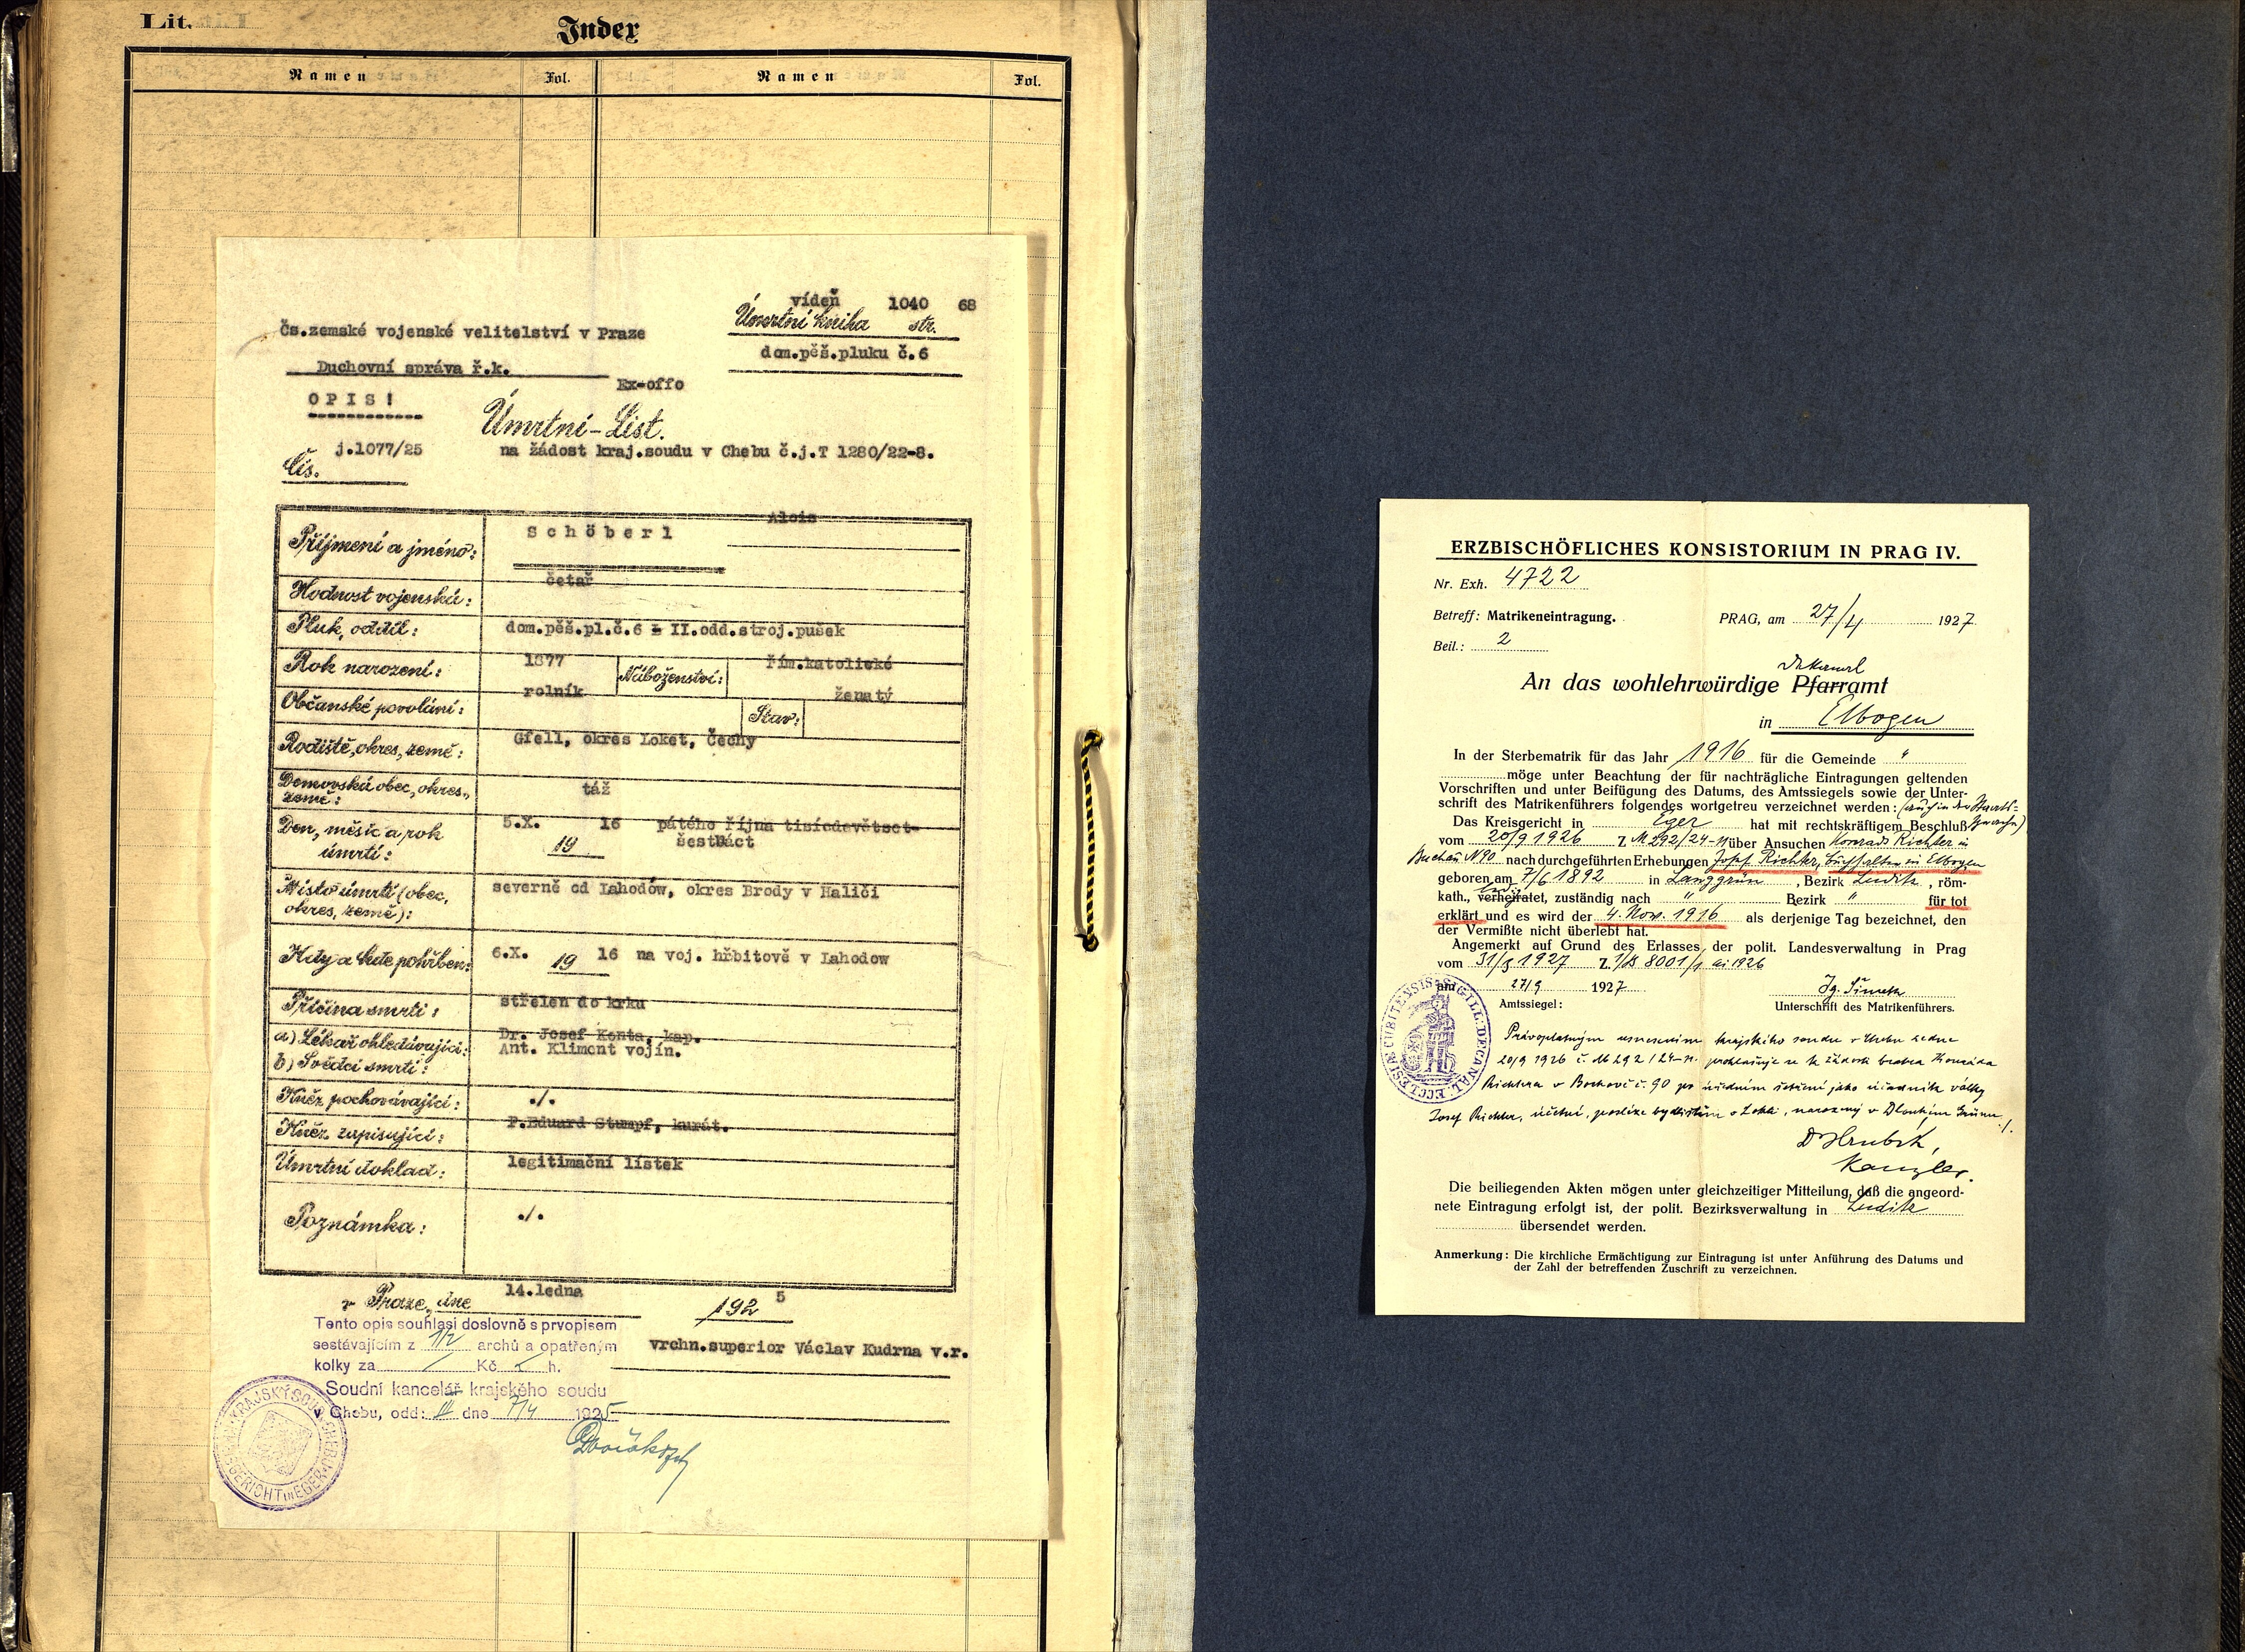 Lit.
Index
Namen Fol. Namen Fol.
vídeň 1040 68
Úmrtní kniha str.
čs.zemské vojenské velitelství v Praze
dom.pěš.pluku č.6
Duchovní správa ř.k.
Ex-offo
OPIS!
Úmrtní-List.
j.1077/25 na žádost kraj.soudu v Chebu č.j.T 1280/22-8.
Čís.
Příjmení a jméno: Schöberl Alois
Hodnost vojenská: četař
Pluk, oddíl: dom.pěš.pl.č.6 - II.odd.stroj.pušek
Rok narození: 1877 Náboženství: řím.katolické
Občanské povolání: rolník Stav: ženatý
Rodiště, okres, země: Gfell, okres Loket, Čechy
Domovská obec, okres, země: táž
Den, měsíc a rok úmrtí: 5.X. 19 16 pátého října tisícdevětset-
šestnáct
Místo úmrtí (obec, okres, země): severně od Lahodów, okres Brody v Haliči
Kdy a kde pohřben: 6.X. 19 16 na voj. hřbitově v Lahodow
Příčina smrti: střelen do krku
a) Lékař ohledávající: Dr. Josef Konta, kap.
b) Svědci smrti: Ant. Kliment vojín.
Kněz pochovávající: ./.
Kněz zapisující: P.Eduard Stumpf, kurát.
Úmrtní doklad: legitimační lístek
Poznámka: ./.
v Praze, dne 14.ledna 192 5
Tento opis souhlasí doslovně s prvopisem
sestávajícím z 1/2 archů a opatřeným
kolky za Kč h.
vrchn.superior Václav Kudrna v.r.
Soudní kancelář krajského soudu
v Chebu, odd: III dne 7/4 1925
KRAJSKÝ SOUD CHEB
KREISGERICHT in EGER
ERZBISCHÖFLICHES KONSISTORIUM IN PRAG IV.
Nr. Exh. 4722
Betreff: Matrikeneintragung. PRAG, am 27/4 1927
Beil.: 2
Dekanal
An das wohlehrwürdige Pfarramt
in Elbogen
In der Sterbematrik für das Jahr 1916 für die Gemeinde "
möge unter Beachtung der für nachträgliche Eintragungen geltenden
Vorschriften und unter Beifügung des Datums, des Amtssiegels sowie der Unter-
schrift des Matrikenführers folgendes wortgetreu verzeichnet werden: (auch in der Staats=
Das Kreisgericht in Eger hat mit rechtskräftigem Beschluß sprache)
vom 20/9 1926 Z. M 292/24-11 über Ansuchen Konrad Richter in
Buchau N 90 nach durchgeführten Erhebungen Josef Richter, Buchhalter in Elbogen
geboren am 7/6 1892 in Langgrün, Bezirk Luditz, röm-
led.
kath., verheiratet, zuständig nach " Bezirk " für tot
erklärt und es wird der 4. Nov. 1916 als derjenige Tag bezeichnet, den
der Vermißte nicht überlebt hat.
Angemerkt auf Grund des Erlasses der polit. Landesverwaltung in Prag
vom 31/3 1927 Z. 8001/1 ai 1926
am 27/9 1927 Jg. Šimek
Amtssiegel: Unterschrift des Matrikenführers.
SIGILL: DECANAL: ECCLESIÆ CUBITENSIS
Právoplatným usnesením krajského soudu v Chebu ze dne
20/9 1926 č. M 292/24-11. prohlašuje se k žádosti bratra Konráda
Richtera v Bochově č. 90 po úředním šetření jako účastník války
Josef Richter, účetní, posléze bydlištěm v Lokti, narozený v Dlouhém Grünu ./.
Dr Hrubík,
Kanzler.
Die beiliegenden Akten mögen unter gleichzeitiger Mitteilung, daß die angeord-
nete Eintragung erfolgt ist, der polit. Bezirksverwaltung in Luditz
übersendet werden.
Anmerkung: Die kirchliche Ermächtigung zur Eintragung ist unter Anführung des Datums und
der Zahl der betreffenden Zuschrift zu verzeichnen.